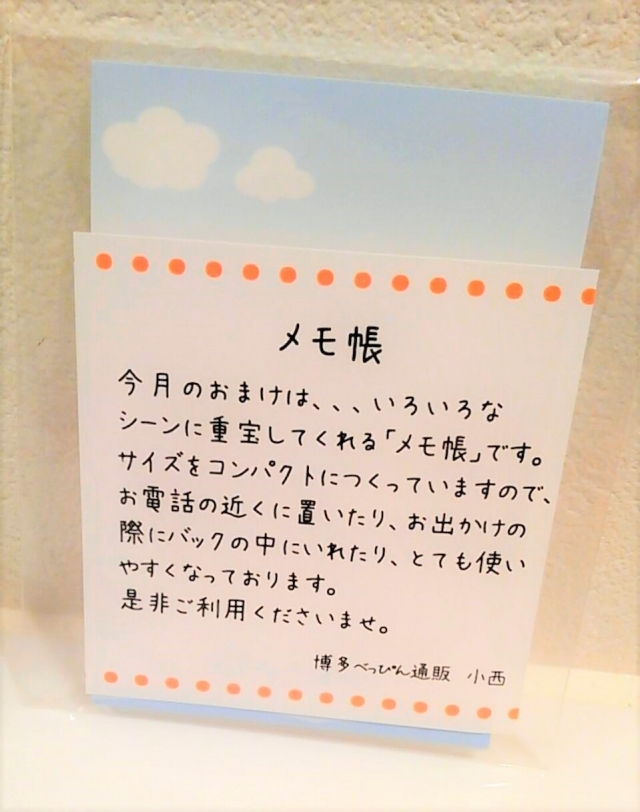 メモ帳
今月のおまけは、、、いろいろな
シーンに重宝してくれる「メモ帳」です。
サイズをコンパクトにつくっていますので、
お電話の近くに置いたり、お出かけの
際にバックの中にいれたり、とても使い
やすくなっております。
是非ご利用くださいませ。
博多べっぴん通販 小西